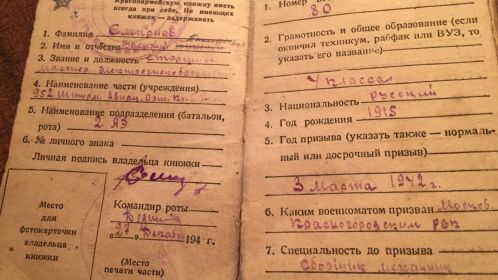 Красноармейскую книжку иметь
всегда при себе. Не имеющих
книжек — задерживать
1. Фамилия Смирнов
2. Имя и отчество Василий
3. Звание и должность Старшина
Мастер
4. Наименование части (учреждения)
952 Штурм. Авиац.
5. Наименование подразделения (батальон,
рота) 2 АЭ
6. № личного знака
Личная подпись владельца книжки
Командир роты
Место
для
фотокарточки
владельца
книжки
„27" Декабря 194 г.
(Место
печати части)
1. Номер
80
2. Грамотность и общее образование (если
окончил техникум, рабфак или ВУЗ, то
указать его название)
7 классов
3. Национальность русский
4. Год рождения 1915
5. Год призыва (указать также — нормаль-
ный или досрочный призыв)
3 Марта 1942 г.
6. Каким военкоматом призван Москов.
Красногорским РВК
7. Специальность до призыва
Сборщик механизм